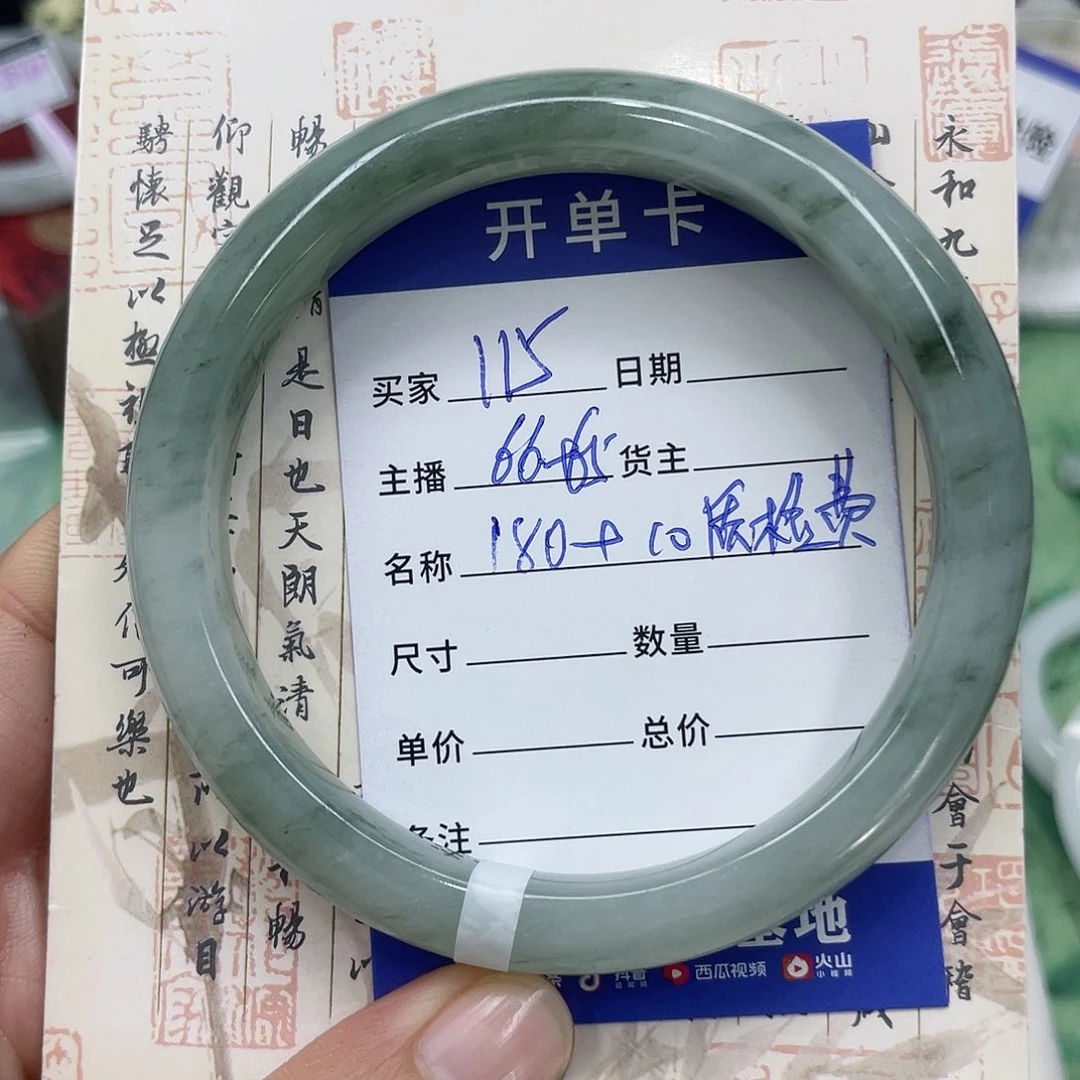 开单卡
买家 115 日期
主播 66 货主
名称 180+10质检费
尺寸 数量
单价 总价
备注
基地
抖音 西瓜视频 火山小视频
永和九
會于會稽
暢
是日也天朗氣清
仰觀
所以游目
騁懷足以極視
可樂也